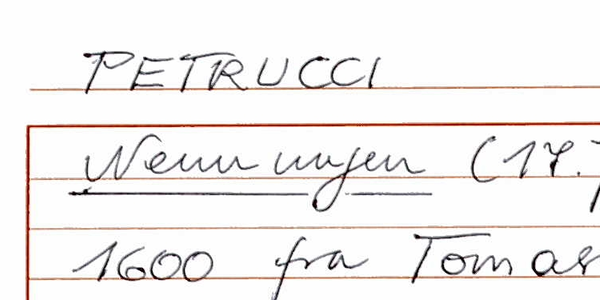 PETRUCCI
Nennungen (17.
1600 fra Tomas